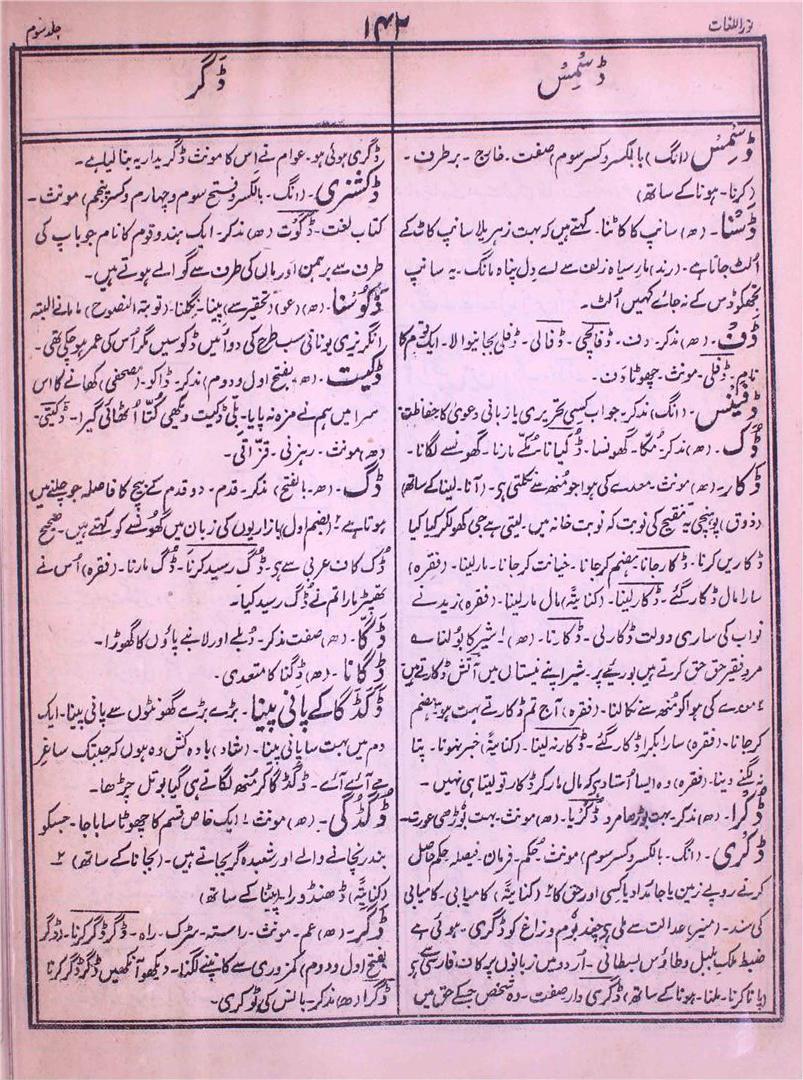 نوراللغات
۱۴۲
جلد سوم
ڈسمِس
ڈگر
ڈسمِس (انگ) بالکسر و کسر سوم) صفت۔ خارج۔ برطرف۔
(کرنا۔ ہونا کے ساتھ)
ڈسنا۔ (ھ) سانپ کا کاٹنا۔ کہتے ہیں کہ بہت زہریلا سانپ کاٹ کے
اُلٹ جاتا ہے۔ (رند) مار سیاہ زلف سے اے دل پناہ مانگ۔ یہ سانپ
تجھکو ڈس کے نہ جائے کہیں اُلٹ۔
ڈف۔ (ھ) مذکر۔ دف۔ ڈفالچی۔ ڈفالی۔ ڈفلی بجانیوالا۔ ایک قوم کا
نام۔ ڈفلی۔ مونث۔ چھوٹا دف۔
ڈفینس۔ (انگ) مذکر۔ جواب کسی تحریری یا زبانی دعوی کا حفاظت
ڈُک۔ (ھ) مذکر۔ مُکّا۔ گھونسا۔ ڈکیانا مُکّے مارنا۔ گھونسے لگانا۔
ڈکار۔ (ھ) مونث۔ معدے کی ہوا جو مُنھ سے نکلتی ہی۔ (آنا۔ لینا کے ساتھ)
(ذوق) پہنچی یہ تنقیح کی نوبت کہ نوبت خانہ میں۔ لیتی ہے جی کھولکر کیا کیا
ڈکاریں کرنا۔ ڈکار جانا ہضم کر جانا۔ خیانت کر جانا۔ مار لینا۔ (فقرہ)
سارا مال ڈکار گئے۔ ڈکار لینا۔ (کنایتہً) مال مار لینا۔ (فقرہ) زید نے
نواب کی ساری دولت ڈکار لی۔ ڈکارنا۔ (ھ) ۱ شیر کا بولنا ؎
مرد فقیر حق حق کرتے ہیں بوریے پر۔ شیر اپنے نیستاں میں آتش ڈکارتے ہیں
۲ معدے کی ہوا کو مُنھ سے نکالنا۔ (فقرہ) آج تم ڈکارتے بہت ہو ۳ ہضم
کر جانا۔ (فقرہ) سارا بکرا ڈکار گئے۔ ڈکار نہ لینا۔ (کنایتہً) خبر نہونا۔ پتا
نہ لگنے دینا۔ (فقرہ) وہ ایسا اُستاد ہی کہ مال مار کر ڈکار تو لیتا ہی نہیں۔
ڈُکرا۔ (ھ) مذکر۔ بہت بوڑھا مرد ڈُکریا۔ (ھ) مونث۔ بہت بوڑھی عورت۔
ڈگری۔ (انگ۔ بالکسر و کسر سوم) مونث۔ حکم۔ فرمان۔ فیصلہ۔ حکم حاصل
کرنے روپے زمین یا جائداد یا کسی اور حق کا۔ (کنایتہً) کامیابی۔ کامیابی
کی سند۔ (منیر) عدالت سے ملی ہی چند بوم و زاغ کو ڈگری۔ ہوئی ہے
ضبط ملک بلبل و طاؤس بُستانی۔ اُردو میں زبانوں پر کاف فارسی سے ہی
(پانا کرنا۔ ملنا۔ ہونا کے ساتھ) ڈگری دار۔ صفت۔ وہ شخص جسکے حق میں
ڈگری ہوئی ہو۔ عوام نے اس کا مونث ڈگریداریہ بنا لیا ہے۔
ڈکشنری۔ (انگ۔ بالکسر و فتح سوم و چہارم و کسر پنجم) مونث۔
کتاب لغت۔ ڈکوت (ھ) مذکر۔ ایک ہندو قوم کا نام جو باپ کی
طرف سے برہمن اور ماں کی طرف سے گوالے ہوتے ہیں۔
ڈکوسنا۔ (ھ) (عو) (تحقیر سے) پینا۔ نگلنا۔ (توبتہ النصوح) ماما نے البتہ
انگریزی یونانی سب طرح کی دوائیں ڈکوسیں مگر اُس کی عمر ہو چکی تھی۔
ڈکیت۔ (ھ) بفتح اول و دوم) مذکر۔ ڈاکو۔ (مصحفی) کھانے کا اس
سرا میں ہم نے مزہ نہ پایا۔ بلّی ڈکیت دیکھی کتّا اُٹھائی گیرا۔ ڈکیتی۔
(ھ) مونث۔ رہزنی۔ قزاقی۔
ڈگ۔ (ھ۔ بالفتح) مذکر۔ قدم۔ دو قدم کے بیچ کا فاصلہ جو چلنے میں
ہوتا ہے ۲ (بضم اول) بازاریوں کی زبان میں گھونسے کو کہتے ہیں۔ صحیح
ڈُک کاف عربی سے ہی۔ ڈُگ رسید کرنا۔ ڈُگ مارنا۔ (فقرہ) اُس نے
تھپڑ مارا تم نے ڈُگ رسید کیا۔
ڈگّا۔ (ھ) صفت مذکر۔ دُبلے اور لانبے پاؤں کا گھوڑا۔
ڈگانا۔ (ھ) ڈِگنا کا متعدی۔
ڈگڈگا کے پانی پینا۔ بڑے بڑے گھونٹوں سے پانی پینا۔ ایک
دم میں بہت سا پانی پینا۔ (شاد) بادہ کش وہ ہوں کہ جبتک ساغر
مے آئے آئے۔ ڈگڈگا کر مُنھ لگاتے ہی گیا بوتل چڑھا۔
ڈُگڈُگی۔ (ھ) مونث ۱ ایک خاص قسم کا چھوٹا سا باجا۔ جسکو
بندر نچانے والے اور شعبدہ گر بجاتے ہیں۔ (بجانا کے ساتھ) ۲
(کنایتہً) ڈھنڈورا۔ (پیٹنا کے ساتھ)
ڈگر۔ (ھ) عم۔ مونث۔ راستہ۔ سڑک۔ راہ۔ ڈگر ڈگر کرنا۔ (ڈگر
بفتح اول و دوم) کمزوری سے کانپنے لگنا۔ دیکھو آنکھیں ڈگر ڈگر کرنا
ڈگرا (ھ) مذکر۔ بانس کی ٹوکری۔